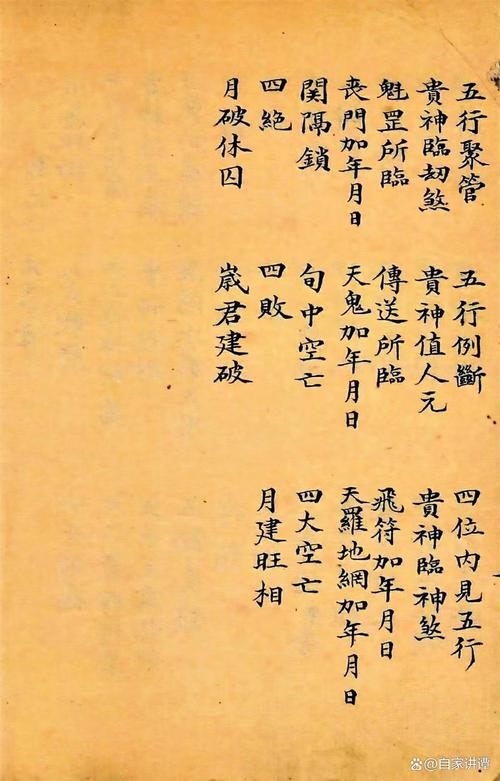 五行聚管
五行例斷
四位内見五行
貴神臨刼煞
貴神值人元
貴神臨神煞
魁罡所臨
傳送所臨
飛符加年月日
喪門加年月日
天鬼加年月日
天羅地網加年月日
関隔鎖
旬中空亡
四大空亡
四絕
四敗
月建旺相
月破休囚
嵗君建破
自家讲谭